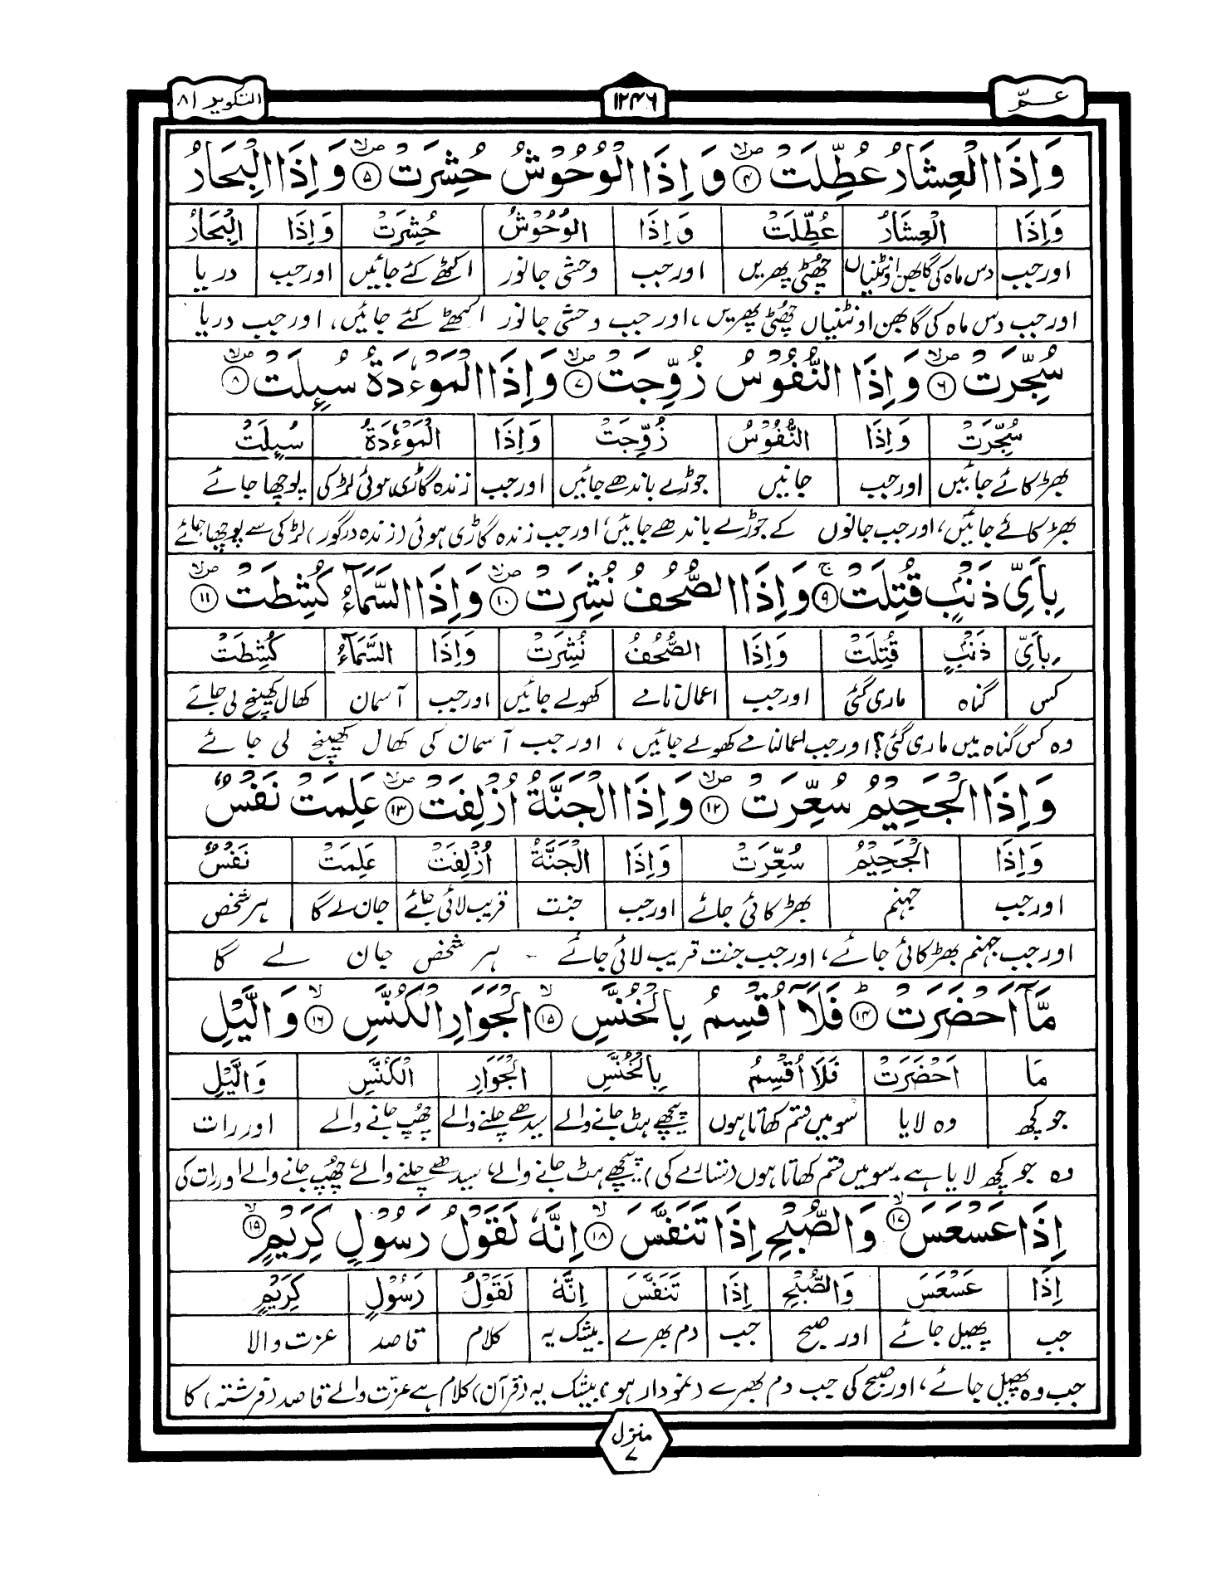 عــمّ ۱۲۴۶ التکویر ۸۱
وَاِذَا الْعِشَارُ عُطِّلَتْ ۪ۙ﴿۴﴾ وَ اِذَا الْوُحُوْشُ حُشِرَتْ ۪ۙ﴿۵﴾ وَاِذَا الْبِحَارُ
وَاِذَا الْعِشَارُ عُطِّلَتْ وَ اِذَا الْوُحُوْشُ حُشِرَتْ وَاِذَا الْبِحَارُ
اور جب دس ماہ کی گابھن اونٹنیاں چھٹی پھریں اور جب وحشی جانور اکٹھے کئے جائیں اور جب دریا
اور جب دس ماہ کی گابھن اونٹنیاں چھٹی پھریں، اور جب وحشی جانور اکھٹے کئے جائیں، اور جب دریا
سُجِّرَتْ ۪ۙ﴿۶﴾ وَ اِذَا النُّفُوْسُ زُوِّجَتْ ۪ۙ﴿۷﴾ وَ اِذَا الْمَوْءٗدَةُ سُىِٕلَتْ ۪ۙ﴿۸﴾
سُجِّرَتْ وَ اِذَا النُّفُوْسُ زُوِّجَتْ وَ اِذَا الْمَوْءٗدَةُ سُىِٕلَتْ
بھڑکائے جائیں اور جب جانیں جوڑے باندھے جائیں اور جب زندہ گاڑی ہوئی لڑکی پوچھا جائے
بھڑکائے جائیں، اور جب جانوں کے جوڑے باندھے جائیں، اور جب زندہ گاڑی ہوئی (زندہ درگور) لڑکی سے پوچھا جائے
بِاَىِّ ذَنْۢبٍ قُتِلَتْ ۚ﴿۹﴾ وَ اِذَا الصُّحُفُ نُشِرَتْ ۪ۙ﴿۱۰﴾ وَ اِذَا السَّمَآءُ كُشِطَتْ ۪ۙ﴿۱۱﴾
بِاَىِّ ذَنْۢبٍ قُتِلَتْ وَ اِذَا الصُّحُفُ نُشِرَتْ وَ اِذَا السَّمَآءُ كُشِطَتْ
کس گناہ ماری گئی اور جب اعمال نامے کھولے جائیں اور جب آسمان کھال کھینچ لی جائے
وہ کس گناہ میں ماری گئی؟ اور جب اعمالنامے کھولے جائیں، اور جب آسمان کی کھال کھینچ لی جائے
وَ اِذَا الْجَحِيْمُ سُعِّرَتْ ۪ۙ﴿۱۲﴾ وَ اِذَا الْجَنَّةُ اُزْلِفَتْ ۪ۙ﴿۱۳﴾ عَلِمَتْ نَفْسٌ
وَ اِذَا الْجَحِيْمُ سُعِّرَتْ وَ اِذَا الْجَنَّةُ اُزْلِفَتْ عَلِمَتْ نَفْسٌ
اور جب جہنم بھڑکائی جائے اور جب جنت قریب لائی جائے جان لے گا ہر شخص
اور جب جہنم بھڑکائی جائے، اور جب جنت قریب لائی جائے ۔ ہر شخص جان لے گا
مَّاۤ اَحْضَرَتْ ؕ﴿۱۴﴾ فَلَاۤ اُقْسِمُ بِالْخُنَّسِ ۙ﴿۱۵﴾ الْجَوَارِ الْكُنَّسِ ۙ﴿۱۶﴾ وَ الَّيْلِ
مَا اَحْضَرَتْ فَلَا اُقْسِمُ بِالْخُنَّسِ الْجَوَارِ الْكُنَّسِ وَ الَّيْلِ
جو کچھ وہ لایا سو میں قسم کھاتا ہوں پیچھے ہٹ جانے والے سیدھے چلنے والے چھپ جانے والے اور رات
وہ جو کچھ لایا ہے۔ سو میں قسم کھاتا ہوں (ستارے کی) پیچھے ہٹ جانے والے، سیدھے چلنے والے، چھپ جانے والے اور رات کی
اِذَا عَسْعَسَ ۙ﴿۱۷﴾ وَ الصُّبْحِ اِذَا تَنَفَّسَ ۙ﴿۱۸﴾ اِنَّهٗ لَقَوْلُ رَسُوْلٍ كَرِيْمٍ ۙ﴿۱۹﴾
اِذَا عَسْعَسَ وَ الصُّبْحِ اِذَا تَنَفَّسَ اِنَّهٗ لَقَوْلُ رَسُوْلٍ كَرِيْمٍ
جب پھیل جائے اور صبح جب دم بھرے بیشک یہ کلام قاصد عزت والا
جب وہ پھیل جائے، اور صبح کی جب دم بھرے (نمودار ہو) بیشک یہ (قرآن) کلام ہے عزت والے قاصد (فرشتہ) کا
منزل ۷